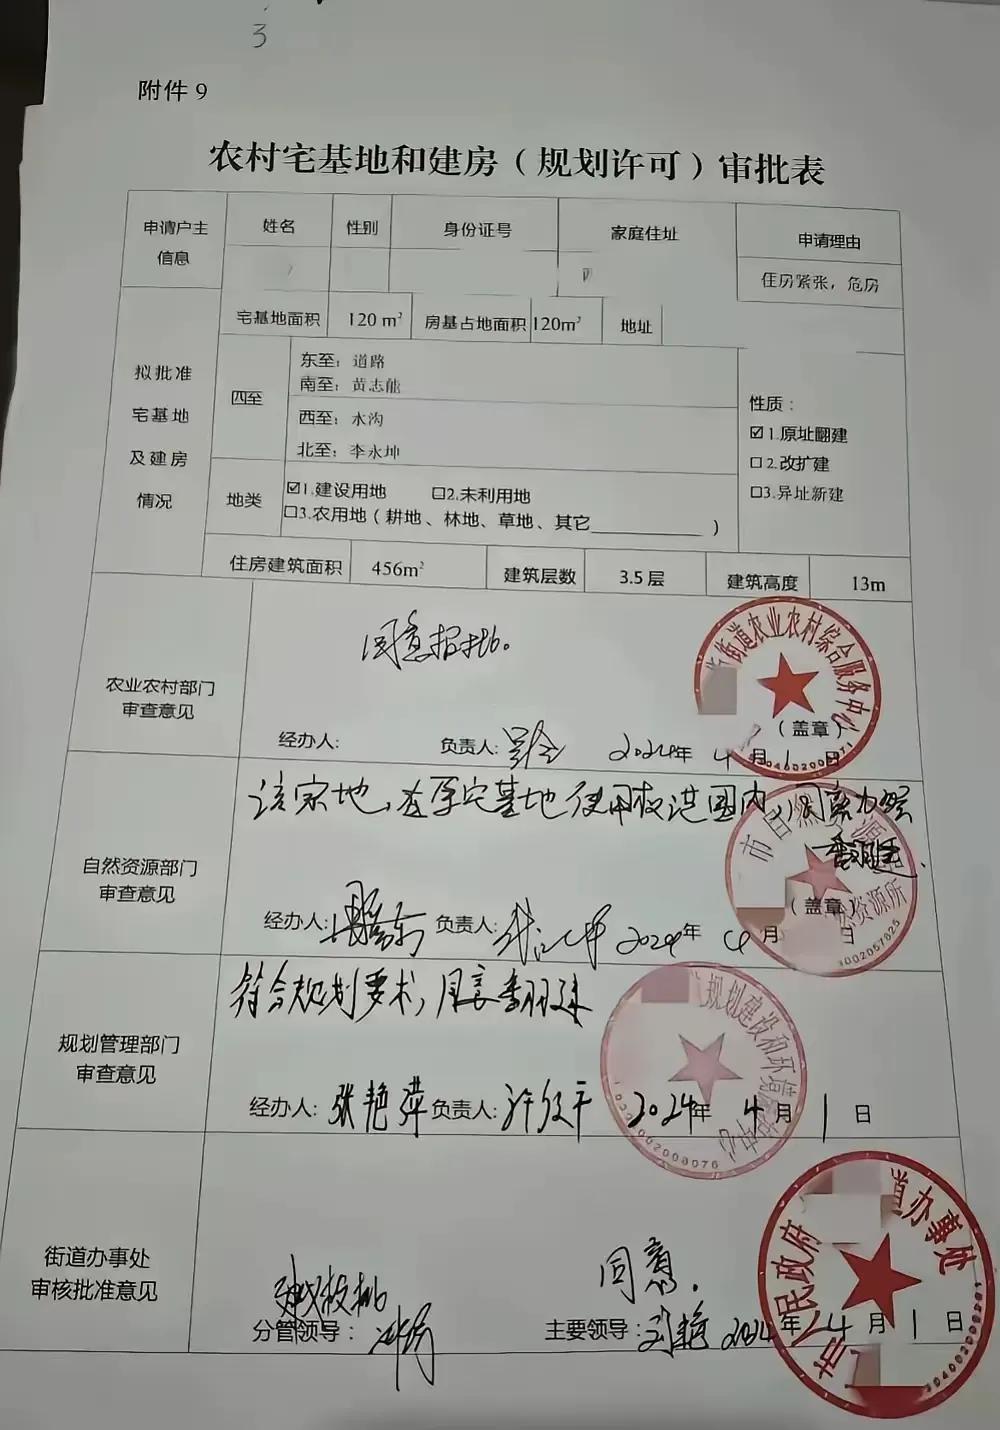 3
附件 9
农村宅基地和建房（规划许可）审批表
申请户主信息
姓名
性别
身份证号
家庭住址
申请理由
住房紧张，危房
拟批准宅基地及建房情况
宅基地面积
120 m²
房基占地面积
120m²
地址
四至
东至：道路
南至：黄志能
西至：水沟
北至：李永坤
性质：
☑1.原址翻建
☐2.改扩建
☐3.异址新建
地类
☑1.建设用地 ☐2.未利用地
☐3.农用地（耕地、林地、草地、其它________）
住房建筑面积
456m²
建筑层数
3.5 层
建筑高度
13m
农业农村部门
审查意见
同意报批。
街道农业农村综合服务中心
（盖章）
经办人: 负责人: 2024年 4月 1日
自然资源部门
审查意见
该宗地,在原宅基地使用权范围内,同意办理
翻建.
市自然资源 资源所
（盖章）
3002057625
经办人: 负责人: 2024年 4月 日
规划管理部门
审查意见
符合规划要求,同意翻建
规划建设和环境 中心
经办人: 张艳萍 负责人: 2024年 4月 1日
街道办事处
审核批准意见
同意.
市 人民政府 道办事处
分管领导： 主要领导: 2024年 4月 1日